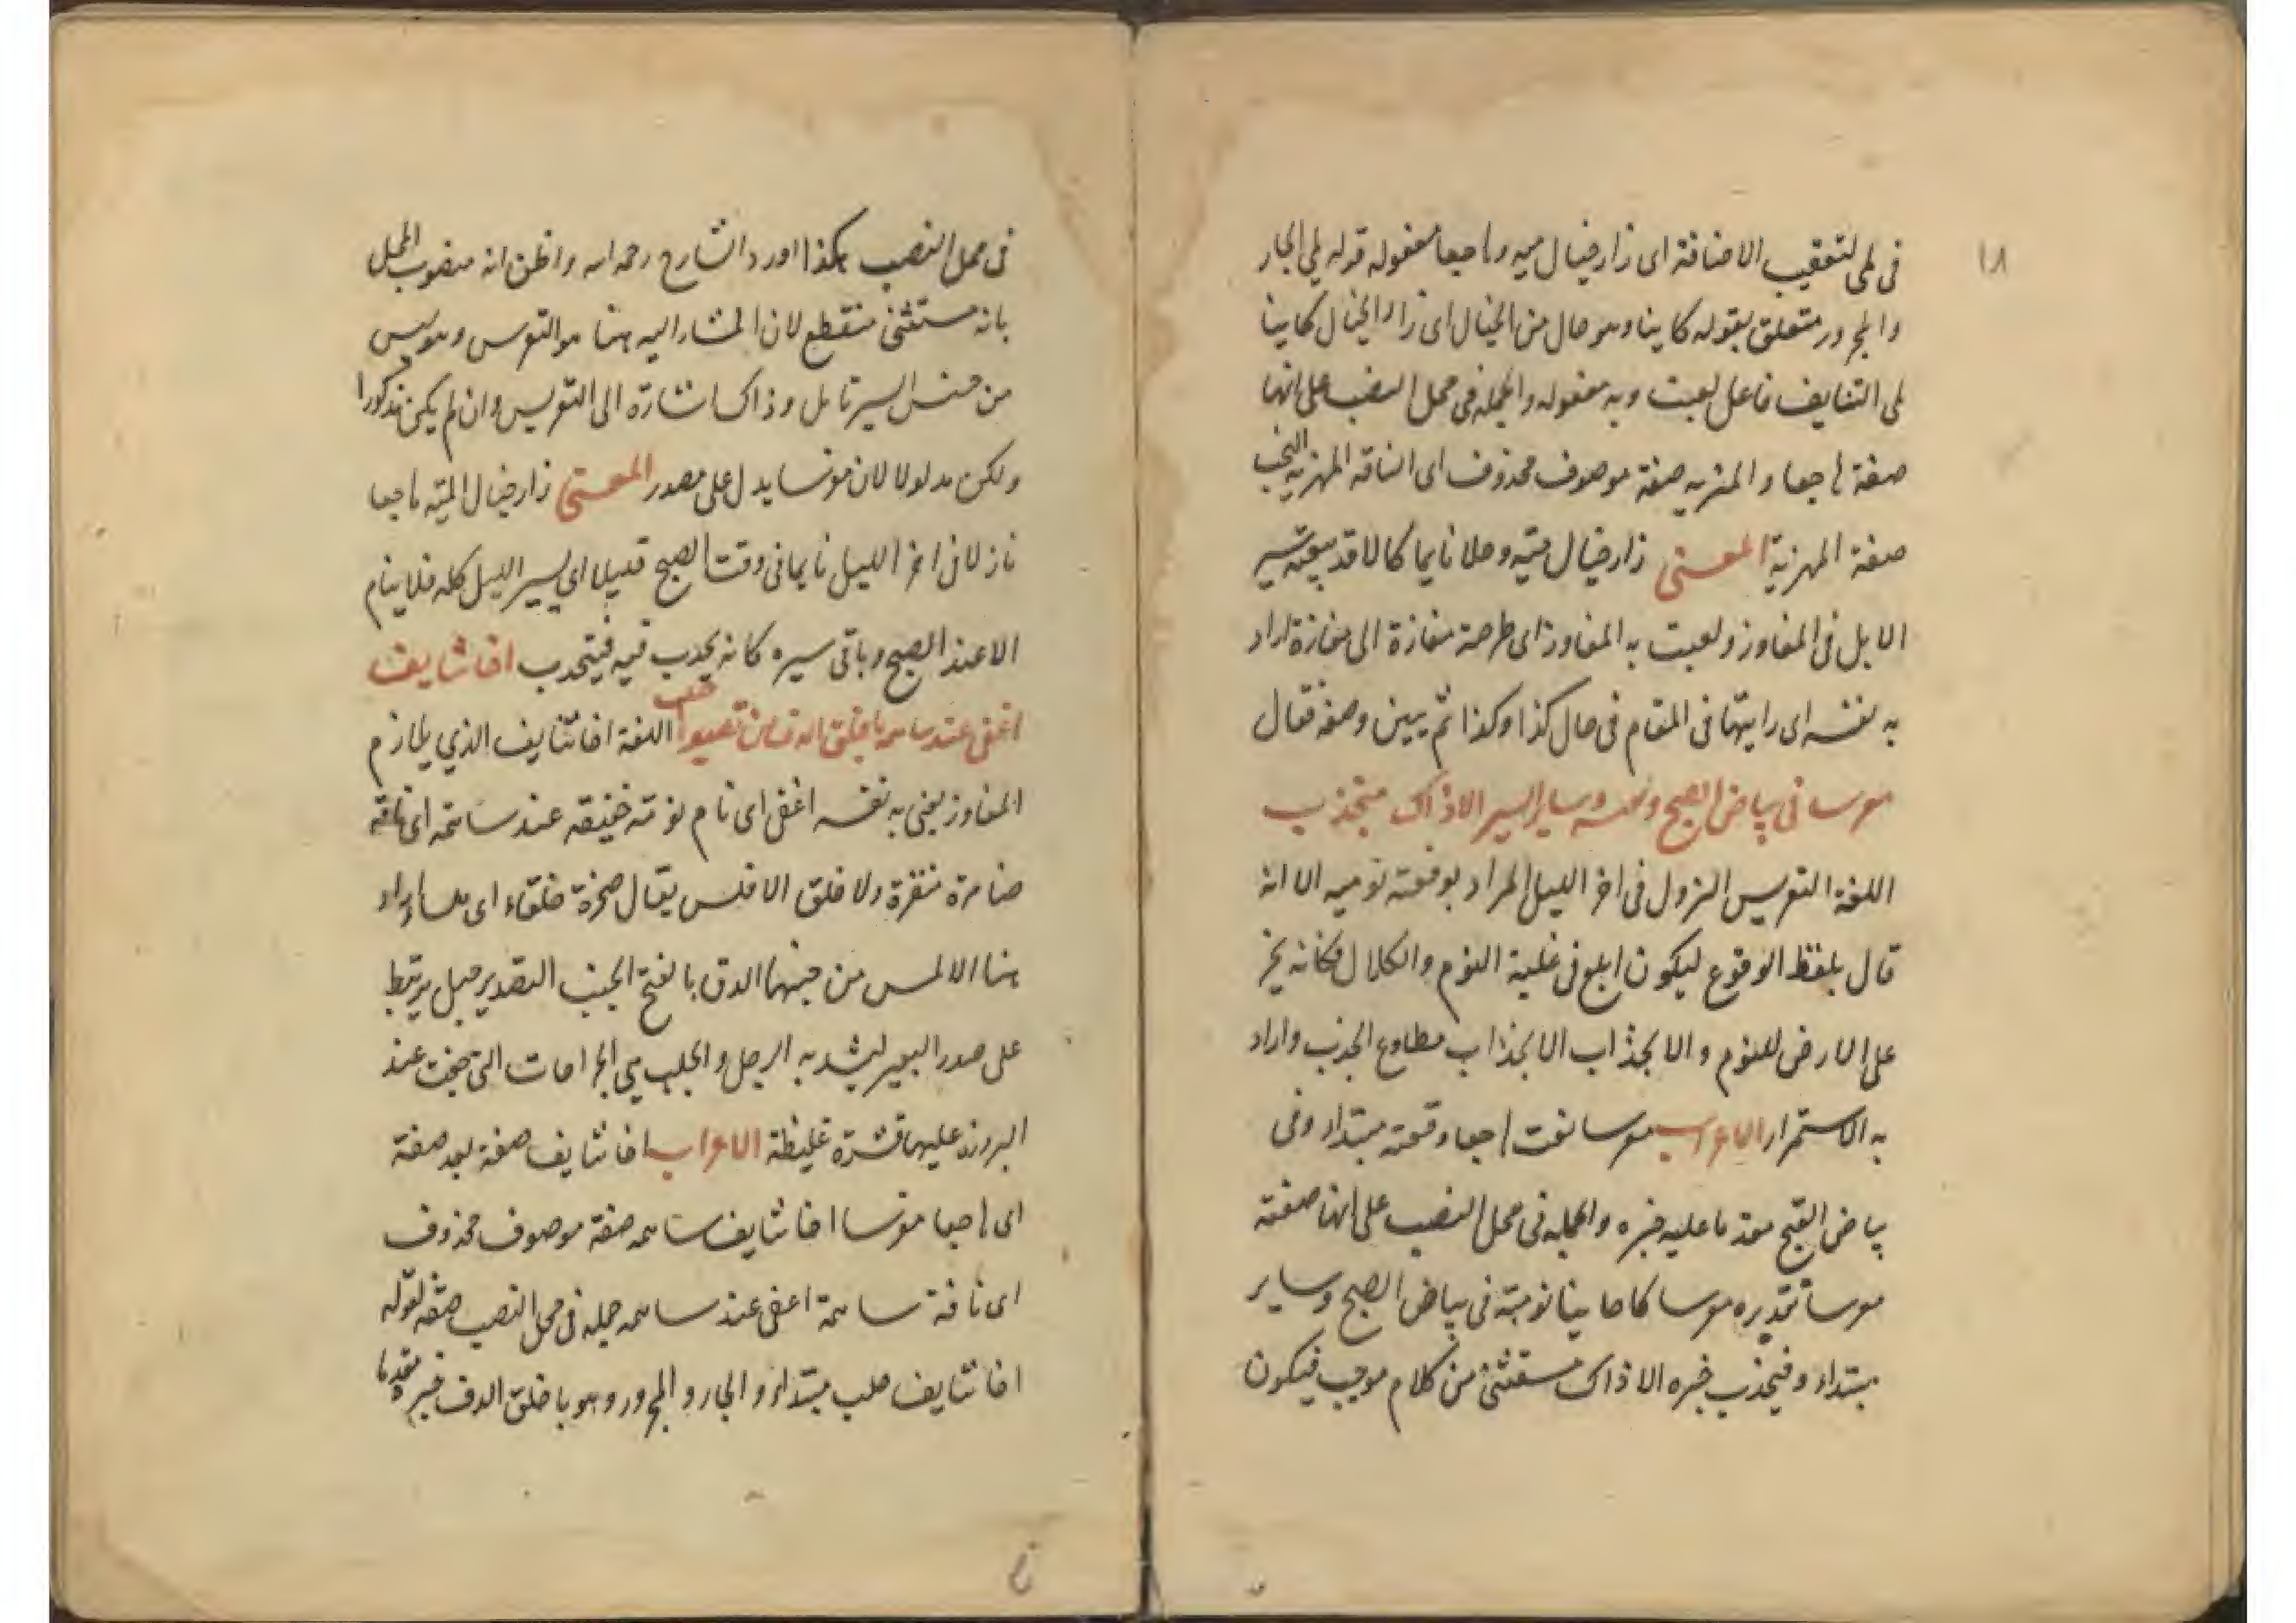 ١٨
فى لمى لتعقيب الاضافة اى زار خيال ميه هاجعا مفعوله قوله لمى الجار
والمجرور متعلق بقوله كاينا وهو حال من الخيال اى زار الخيال كاينا
لمى التنايف فاعل لعبت وبه مفعوله والجمله فى محل النصب على انها
صفة هاجعا والمهريه صفة موصوف محذوف اى الناقه المهريه النجب
صفة المهرية المعنى زار خيال ميه رجلا نايما كالا قد سير
الابل فى المفاوز ولعبت به المفاوز اى طرحته مفازة الى مفازة اراد
به نفسه اى رايتها فى المقام فى حال كذا وكذا ثم يبين وصفه فقال
معرسا فى بياض الصبح وقعته وساير السير الا ذاك منجذب
اللغة التعريس النزول فى اخر الليل المراد بوقعته نوميه الا انه
قال بلفظ الوقوع ليكون ابلغ فى غلبة النوم والكلال فكانه يخر
على الارض للنوم والانجذاب الانجذاب مطاوع الجذب واراد
به الاستمرار الاعراب معرسا نعت هاجعا وقعته مبتداء وفى
بياض الصبح مقدما عليه خبره والجمله فى محل النصب على انها صفة
معرسا تقديره معرسا نومته فى بياض الصبح وساير
مبتداء ومنجذب خبره الا ذاك مستثنى من كلام موجب فيكون
فى محل النصب هكذا اورد الشارح رحمه اسه واظن انه منصوب المحل
بانه مستثنى منقطع لان المشار اليه هنا هو التعرس وهو ليس
من جنس السير تامل وذاك اشارة الى التعريس وان لم يكن مذكورا
ولكن مدلولا لان معرسا يدل على مصدر المعنى زار خيال الميته هاجعا
نازلا فى اخر الليل نايما فى وقت الصبح قليلا اى يسير الليل كله فلا ينام
الا عند الصبح وباقى سيره كانه يجذب فيه فينجذب اخا تنايف
اغفى عند ساهمة باخلق الدف من تصديرها جلب اللغة اخا تنايف الذي يلازم
المفاوز يعنى به نفسه اغفى اى نام نومة خفيفه عند ساهمة اى ناقة
ضامرة متغيرة ولا خلق الاملس يقال صخرة خلقاء اى ملساء اراد
هنا الاملس من جنبها الدف بالفتح الجنب التصدير حبل يرتبط
على صدر البعير ليشد به الرحل والجلب هى الجراحات التى عند
البرء عليها قشرة غليظة الاعراب اخا تنايف صفة بعد صفة
اى هاجعا معرسا اخا تنايف ساهمه صفة موصوف محذوف
اى ناقة ساهمة اغفى عند ساهمه جمله فى محل النصب صفة لقوله
اخا تنايف جلب مبتداء والجار والمجرور وهو باخلق الدف خبره مقدما